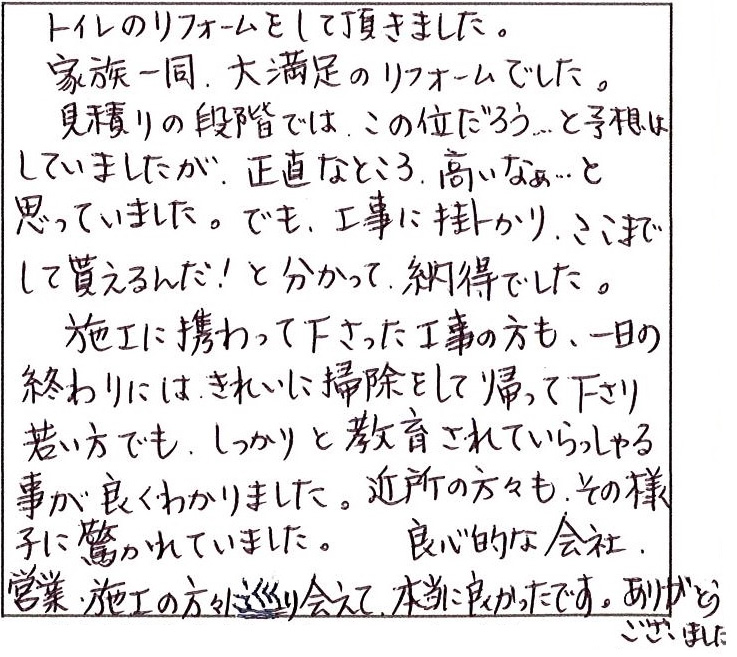 トイレのリフォームをして頂きました。
家族一同、大満足のリフォームでした。
見積りの段階では、この位だろう…と予想は
していましたが、正直なところ、高いなぁ…と
思っていました。でも、工事に掛かり、ここまで
して貰えるんだ!と分かって、納得でした。
施工に携わって下さった工事の方も、一日の
終わりには、きれいに掃除をして帰って下さり
若い方でも、しっかりと教育されていらっしゃる
事が良くわかりました。近所の方々も、その様
子に驚かれていました。 良心的な会社、
営業・施工の方々に巡り会えて、本当に良かったです。ありがとう
ございました